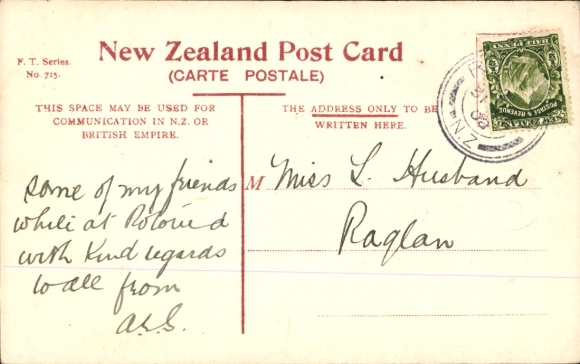 F. T. Series.
No. 715.
New Zealand Post Card
(CARTE POSTALE)
THIS SPACE MAY BE USED FOR
COMMUNICATION IN N.Z. OR
BRITISH EMPIRE.
THE ADDRESS ONLY TO BE
WRITTEN HERE.
some of my friends
while at
with Kind regards
to all from
M Miss L. Husband
Raglan
HALF PENNY
POSTAGE & REVENUE
NEW ZEALAND
N.Z